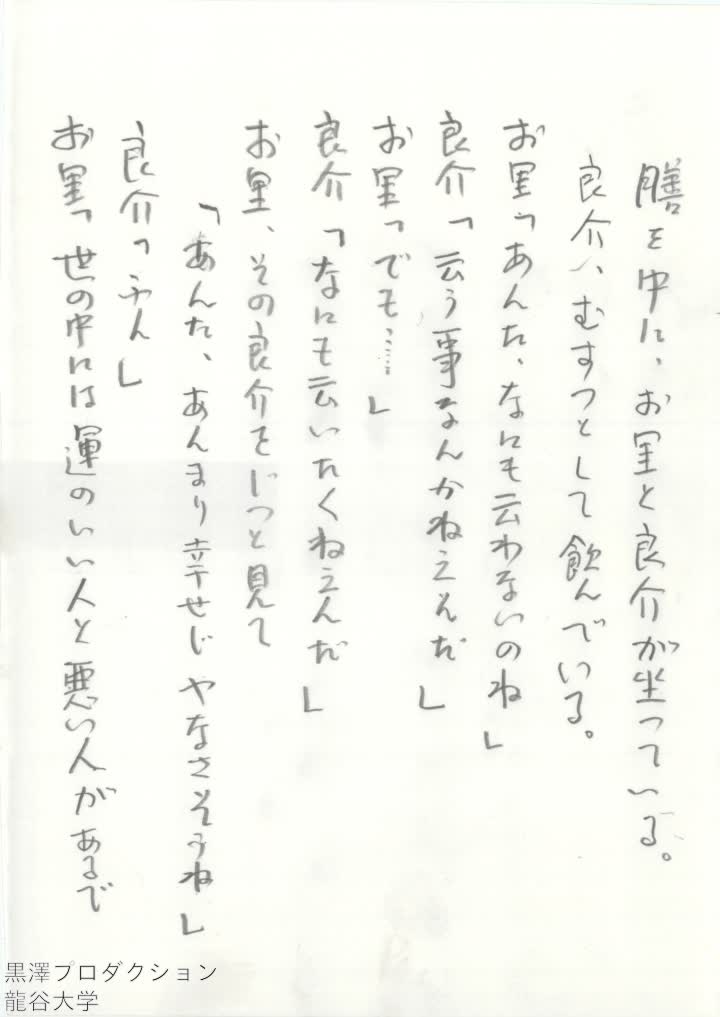 膳を中に、お里と良介が坐っている。
良介、むすっとして飲んでいる。
お里「あんた、なにも云わないのね」
良介「云う事なんかねえんだ」
お里「でも……」
良介「なにも云いたくねえんだ」
お里、その良介をじっと見て
「あんた、あんまり幸せじやなさそうね」
良介「ふん」
お里「世の中には運のいい人と悪い人があるで
黒澤プロダクション
龍谷大学